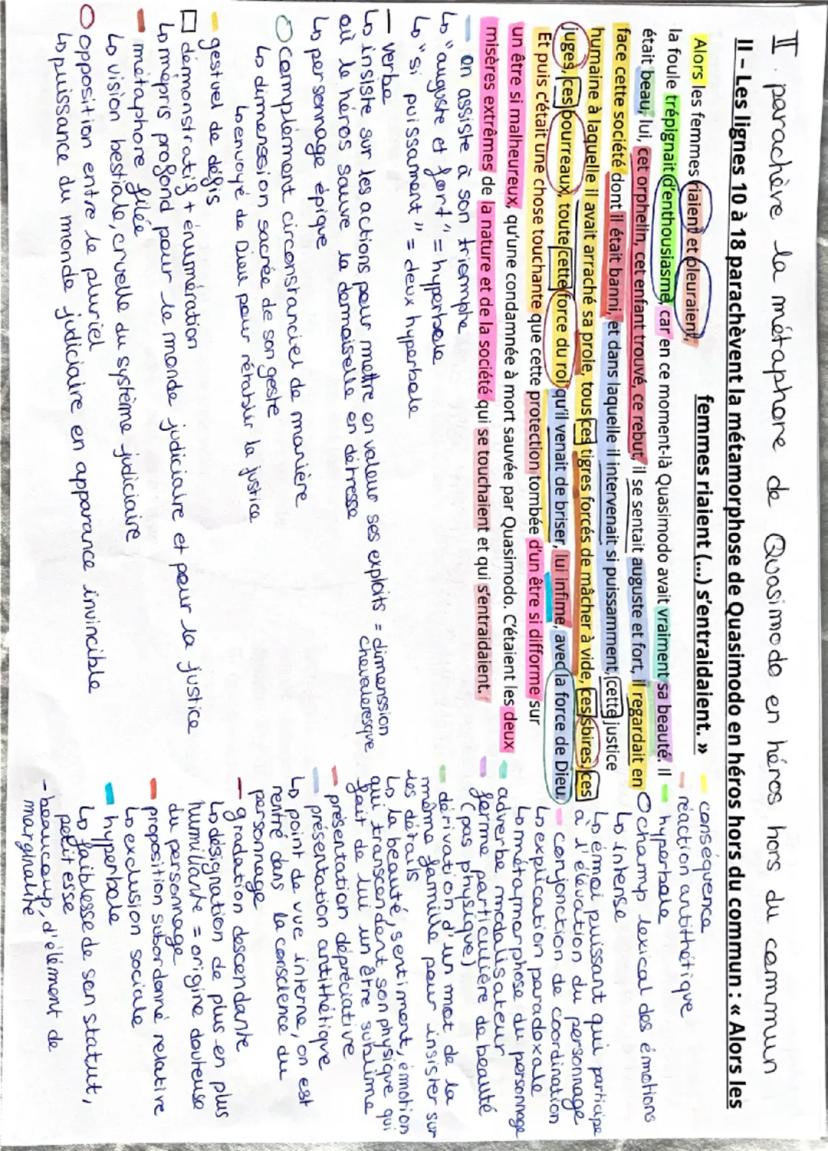 II. parachève la métaphore de Quasimodo en héros hors du commun
II – Les lignes 10 à 18 parachèvent la métamorphose de Quasimodo en héros hors du commun : « Alors les
femmes riaient (...) s'entraidaient. »
Alors les femmes riaient et pleuraient,
la foule trépignait d'enthousiasme, car en ce moment-là Quasimodo avait vraiment sa beauté. Il
était beau, lui, cet orphelin, cet enfant trouvé, ce rebut, il se sentait auguste et fort, il regardait en
face cette société dont il était banni, et dans laquelle il intervenait si puissamment, cette justice
humaine à laquelle il avait arraché sa proie, tous ces tigres forcés de mâcher à vide, ces sbires, ces
juges, ces bourreaux, toute cette force du roi qu'il venait de briser, lui infime, avec la force de Dieu
Et puis c'était une chose touchante que cette protection tombée d'un être si difforme sur
un être si malheureux, qu'une condamnée à mort sauvée par Quasimodo. C'étaient les deux
misères extrêmes de la nature et de la société qui se touchaient et qui s'entraidaient.
- on assiste à son triomphe
↳ "auguste et fort" = hyperbole
↳ "si puissament" = deux hyperbole
— verbe
↳ insiste sur les actions pour mettre en valeur ses exploits = dimension chevaleresque
où le héros sauve la demoiselle en détresse
↳ personnage épique
○ complément circonstanciel de manière
↳ dimension sacrée de son geste
↳ envoyé de Dieu pour rétablir la justice
- gestuel de défis
□ démonstratif + énumération
↳ mépris profond pour le monde judiciaire et pour la justice
- métaphore filée
↳ vision bestiale, cruelle du système judiciaire
○ opposition entre le pluriel
↳ puissance du monde judiciaire en apparance invincible
- conséquence
- réaction antithétique
- hyperbole
○ champ lexical des émotions
↳ intense
↳ émoi puissant qui participe
à l'élévation du personnage
- conjonction de coordination
↳ explication paradoxale
↳ métamorphose du personnage
- adverbe modalisateur
- forme particulière de beauté
(pas physique)
- dérivation d'un mot de la
même famille pour insister sur
les détails
↳ la beauté, sentiment, émotion
qui transcendent son physique qui
fait de lui un être sublime
- présentation dépréciative
- présentation antithétique
↳ point de vue interne, on est
rentré dans la conscience du
personnage
- gradation descendante
↳ désignation de plus en plus
humiliante = origine douteuse
du personnage
- proposition subordonné relative
↳ exclusion sociale
- hyperbole
↳ faiblesse de son statut,
petitesse
- beaucoup d'élément de
marginalité